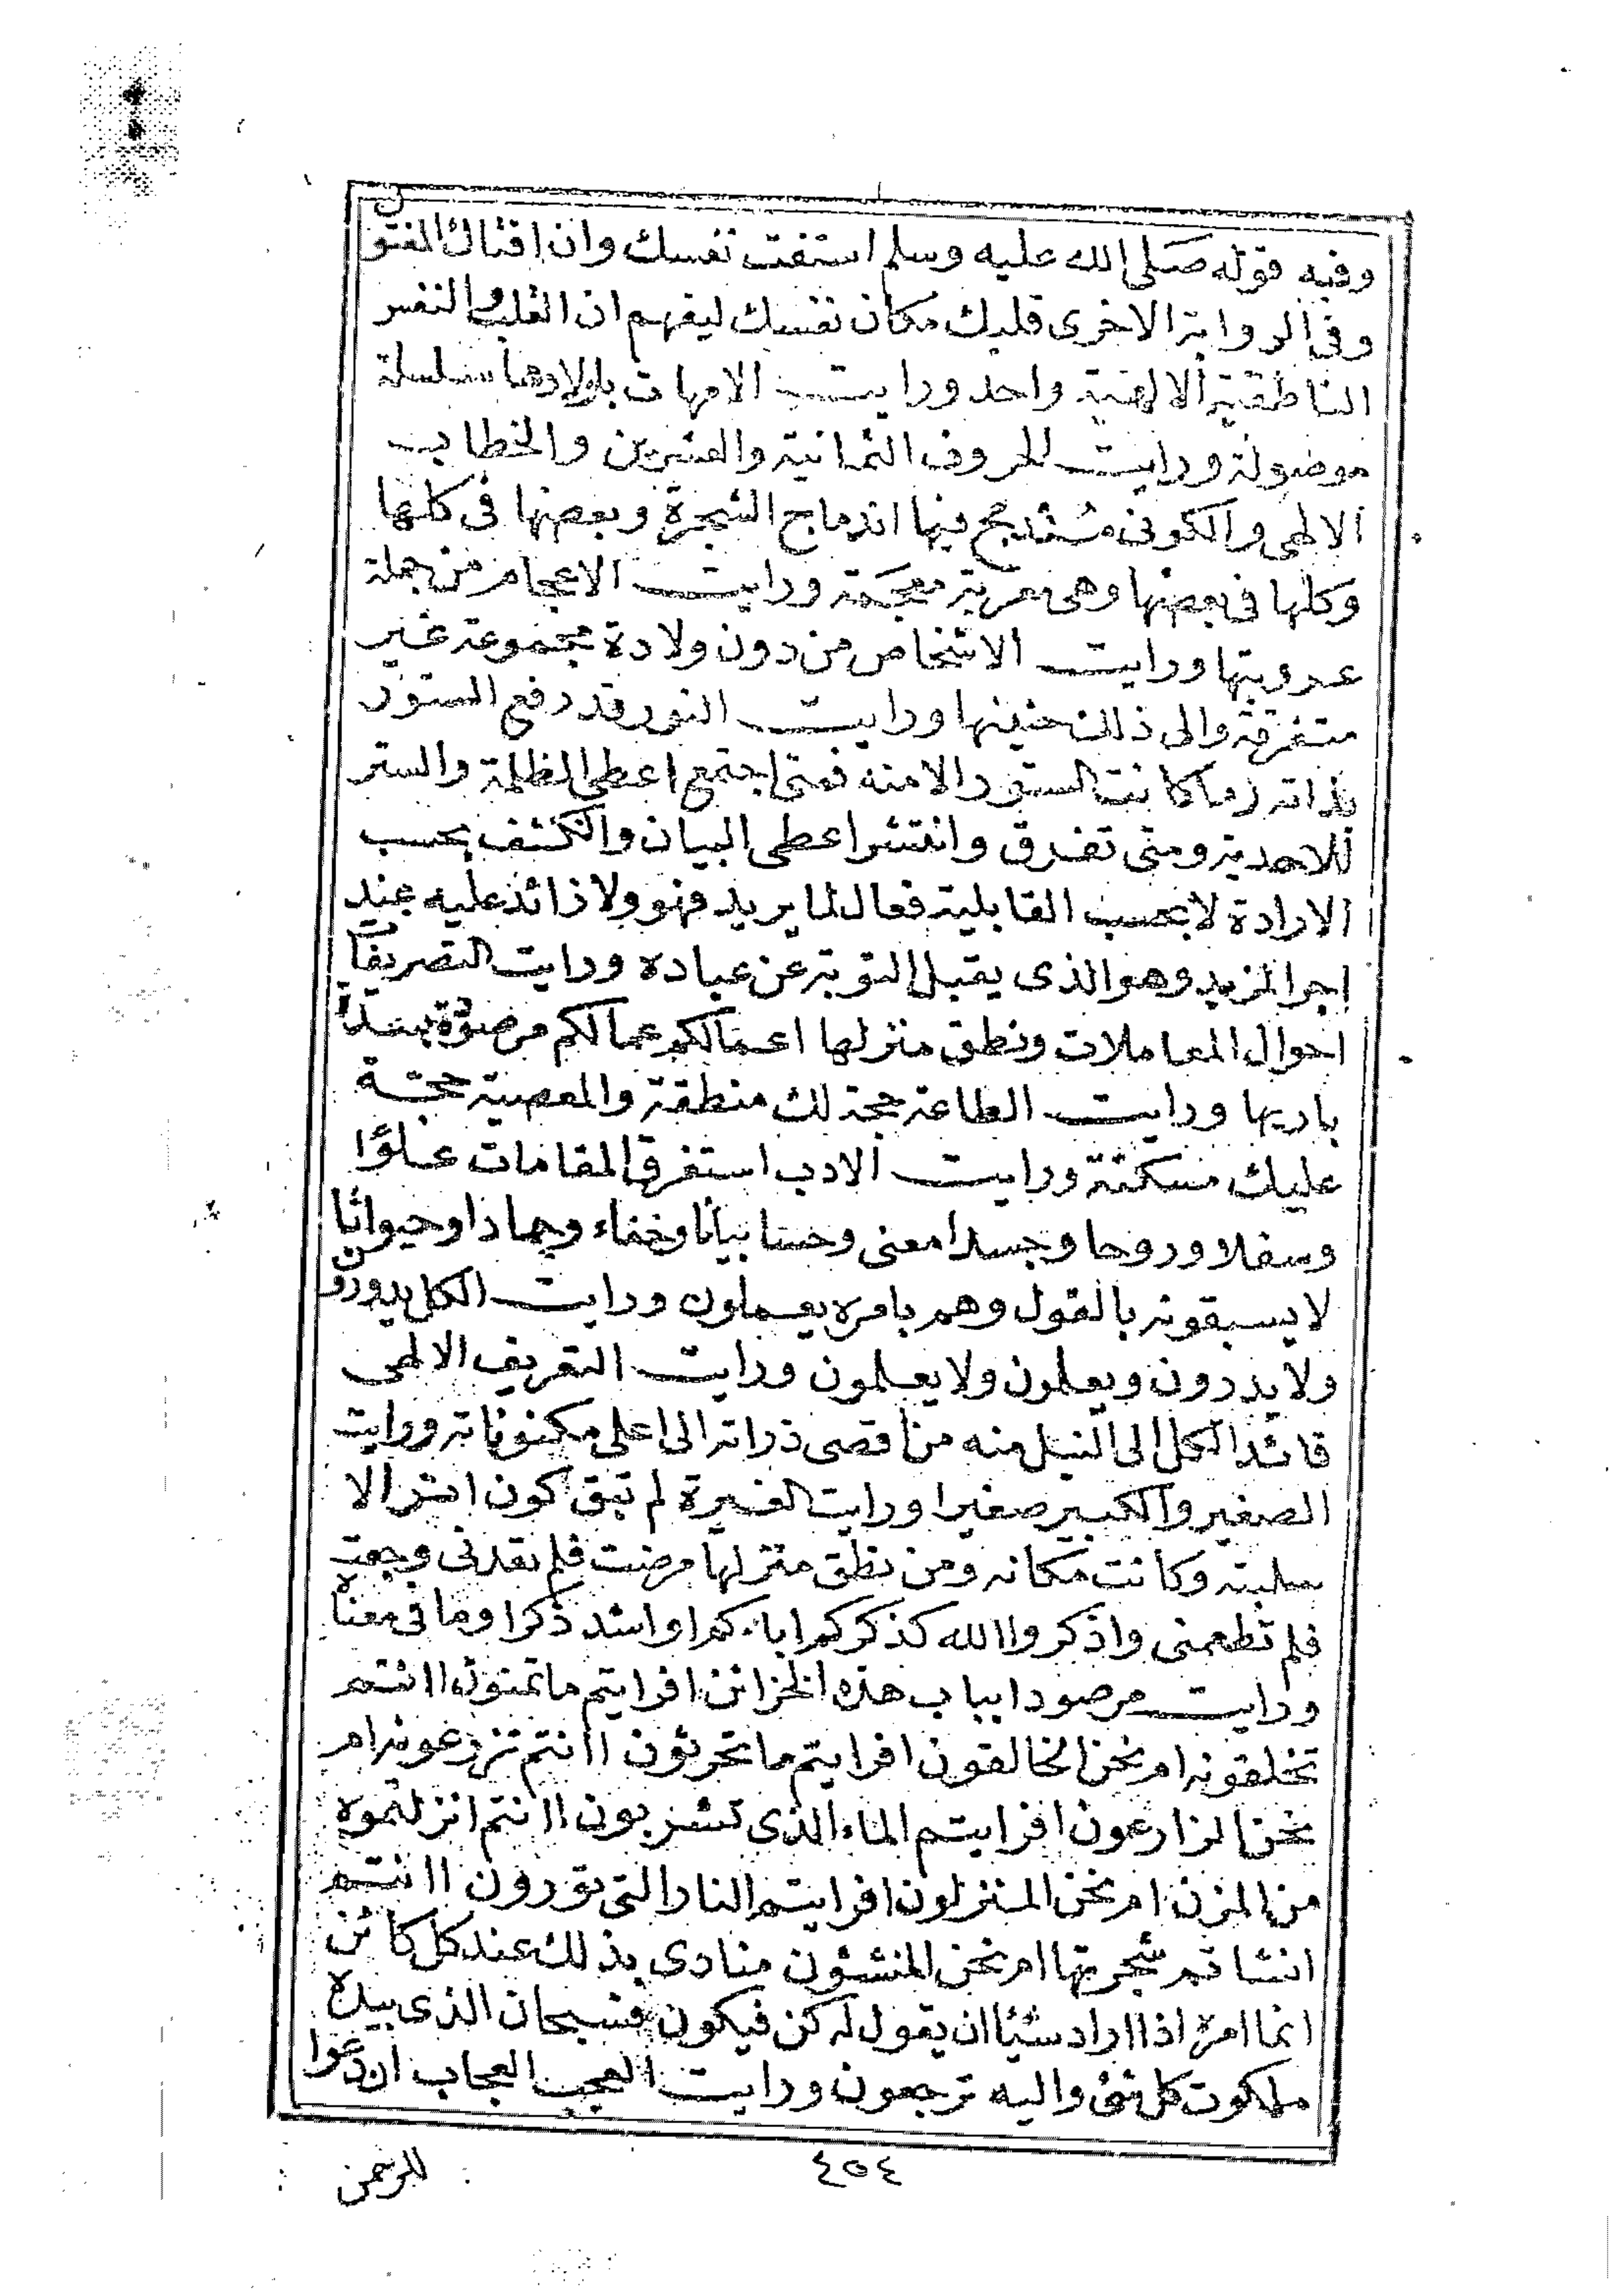 وفيه قوله صلى الله عليه وسلم استفت نفسك وان افتاك المفتون
وفي الرواية الاخرى قلبك مكان نفسك ليفهم ان القلب والنفس
الناطقة الالهية واحد ورايت الامهات باولادها سلسلة
موصولة ورايت الحروف الثمانية والعشرين والخطاب
الالهى والكونى مندمج فيها اندماج الشجرة وبعضها فى كلها
وكلها فى بعضها وهى معربة معجمة ورايت الاعجام من جملة
عروبتها ورايت الاشخاص من دون ولادة مجموعة غير
متفرقة والى ذلك حنينها ورايت النور قد رفع الستور
بذاته وما كانت الستور الا منه فمتى اجتمع اعطى الظلمة والستر
للاحدية ومتى تفرق وانتشر اعطى البيان والكشف بحسب
الارادة لا بحسب القابلية فعال لما يريد فهو ولا زائد عليه عند
اجر المزيد وهو الذى يقبل التوبة عن عباده ورايت التصريف
احوال المعاملات ونطق منزلها اعمالكم عمالكم مرصودة بيد
باريها ورايت الطاعة حجة لك منطقة والمعصية حجة
عليك مسكتة ورايت الادب استغرق المقامات علوًا
وسفلا وروحا وجسدا معنى وحسا بيانا وخفاء وجمادا وحيوانا
لا يسبقونه بالقول وهم بامره يعملون ورايت الكل يدورون
ولا يدرون ويعلمون ولا يعلمون ورايت التعريف الالهى
قائد الكل الى النيل منه من اقصى ذراته الى اعلى مكنوناته ورايت
الصغير والكبير صغيرا ورايت الغيرة لم تبق كون اثر الا
سلبته وكانت مكانه ومن نطق منزلها مرضت فلم تعدنى وجعت
فلم تطعمنى واذكروا الله كذكركم اباءكم او اشد ذكرا وما فى معناه
ورايت مرصودا بباب هذه الخزائن افرايتم ما تمنون اانتم
تخلقونه ام نحن الخالقون افرايتم ما تحرثون اانتم تزرعونه ام
نحن الزارعون افرايتم الماء الذى تشربون اانتم انزلتموه
من المزن ام نحن المنزلون افرايتم النار التى تورون اانتم
انشاتم شجرتها ام نحن المنشؤن منادى بذلك عند كل كائن
انما امره اذا اراد شيئا ان يقول له كن فيكون فسبحان الذى بيده
ملكوت كل شئ واليه ترجعون ورايت العجب العجاب ان دعوا
٤٥٤
للرحمن